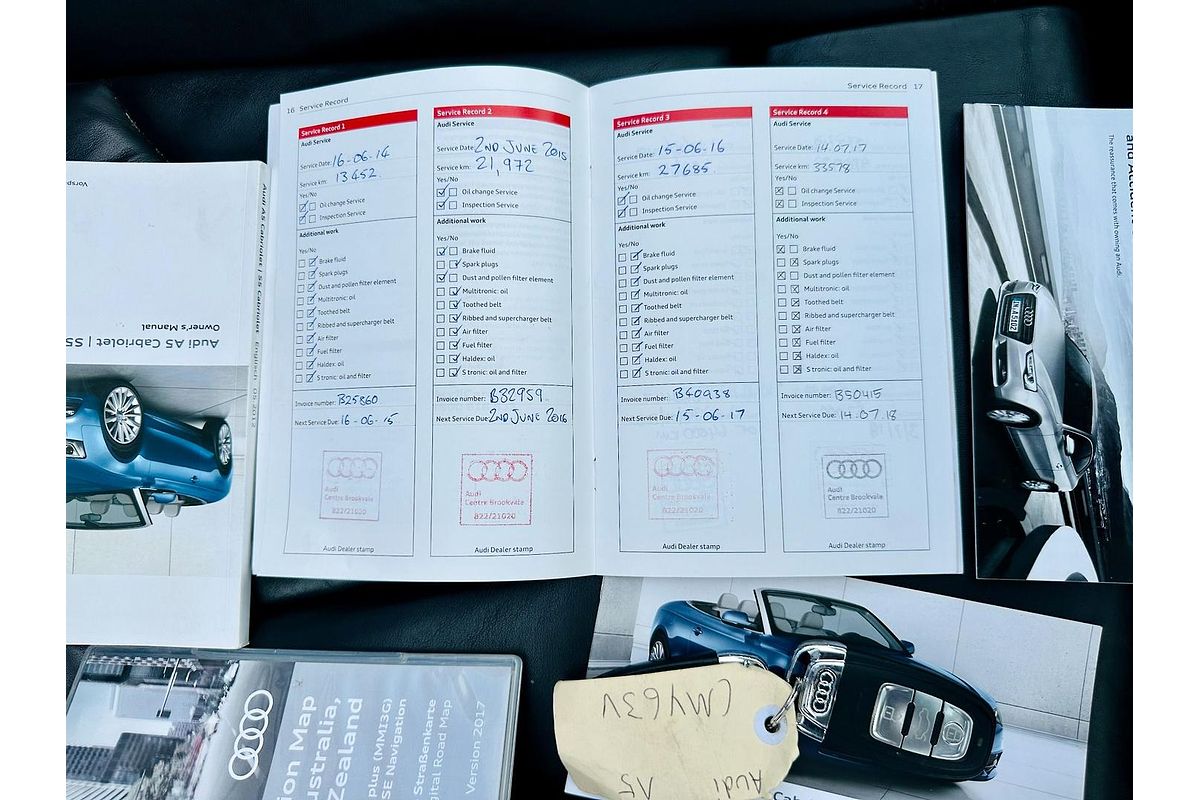 16 Service Record
Service Record 1
Audi Service
Service Date: 16-06-14
Service km: 13452.
Yes/No
Oil change Service
Inspection Service
Additional work
Yes/No
Brake fluid
Spark plugs
Dust and pollen filter element
Multitronic: oil
Toothed belt
Ribbed and supercharger belt
Air filter
Fuel filter
Haldex: oil
S tronic: oil and filter
Invoice number: B25860
Next Service Due: 16-06-15
Audi
Centre Brookvale
822/21020
Audi Dealer stamp
Service Record 2
Audi Service
Service Date: 2ND JUNE 2015
Service km: 21,972
Yes/No
Oil change Service
Inspection Service
Additional work
Yes/No
Brake fluid
Spark plugs
Dust and pollen filter element
Multitronic: oil
Toothed belt
Ribbed and supercharger belt
Air filter
Fuel filter
Haldex: oil
S tronic: oil and filter
Invoice number: B32959
Next Service Due: 2ND JUNE 2016
Audi
Centre Brookvale
822/21020
Audi Dealer stamp
Service Record 17
Service Record 3
Audi Service
Service Date: 15-06-16
Service km: 27685.
Yes/No
Oil change Service
Inspection Service
Additional work
Yes/No
Brake fluid
Spark plugs
Dust and pollen filter element
Multitronic: oil
Toothed belt
Ribbed and supercharger belt
Air filter
Fuel filter
Haldex: oil
S tronic: oil and filter
Invoice number: B40938
Next Service Due: 15-06-17
Audi
Centre Brookvale
822/21020
Audi Dealer stamp
Service Record 4
Audi Service
Service Date: 14.07.17
Service km: 33578
Yes/No
Oil change Service
Inspection Service
Additional work
Yes/No
Brake fluid
Spark plugs
Dust and pollen filter element
Multitronic: oil
Toothed belt
Ribbed and supercharger belt
Air filter
Fuel filter
Haldex: oil
S tronic: oil and filter
Invoice number: B50415
Next Service Due: 14.07.18
Audi
Centre Brookvale
822/21020
Audi Dealer stamp
Audi A5 Cabriolet | S5 Cabriolet English 05.2012
Audi A5 Cabriolet | S5
Owner's Manual
The reassurance that comes with owning an Audi.
ion Map
ustralia,
Zealand
plus (MMI3G)
SE Navigation
Straßenkarte
gital Road Map
Version 2017
Audi A5
CMY63V